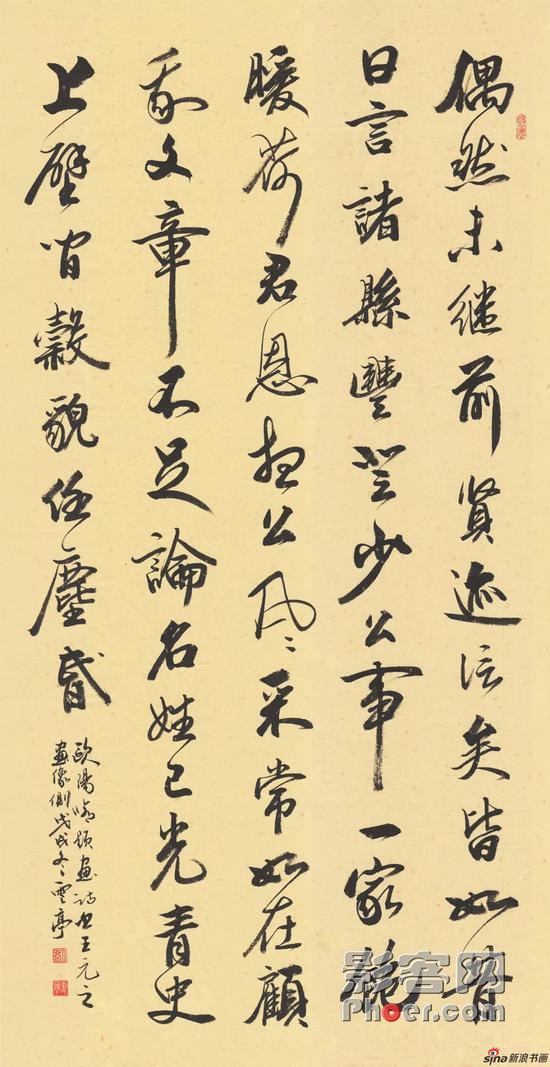 偶然来继前贤迹信矣皆如昔
日言諸縣豐登少公事一家飽
暖荷君恩想公风采常如在顧
我文章不足論名姓已光青史
上壁间穀貌任塵昏
歐陽脩題畫詩書王元之
畫像側戊戌冬雲亭
影客网
Phoer.com
sina新浪书画